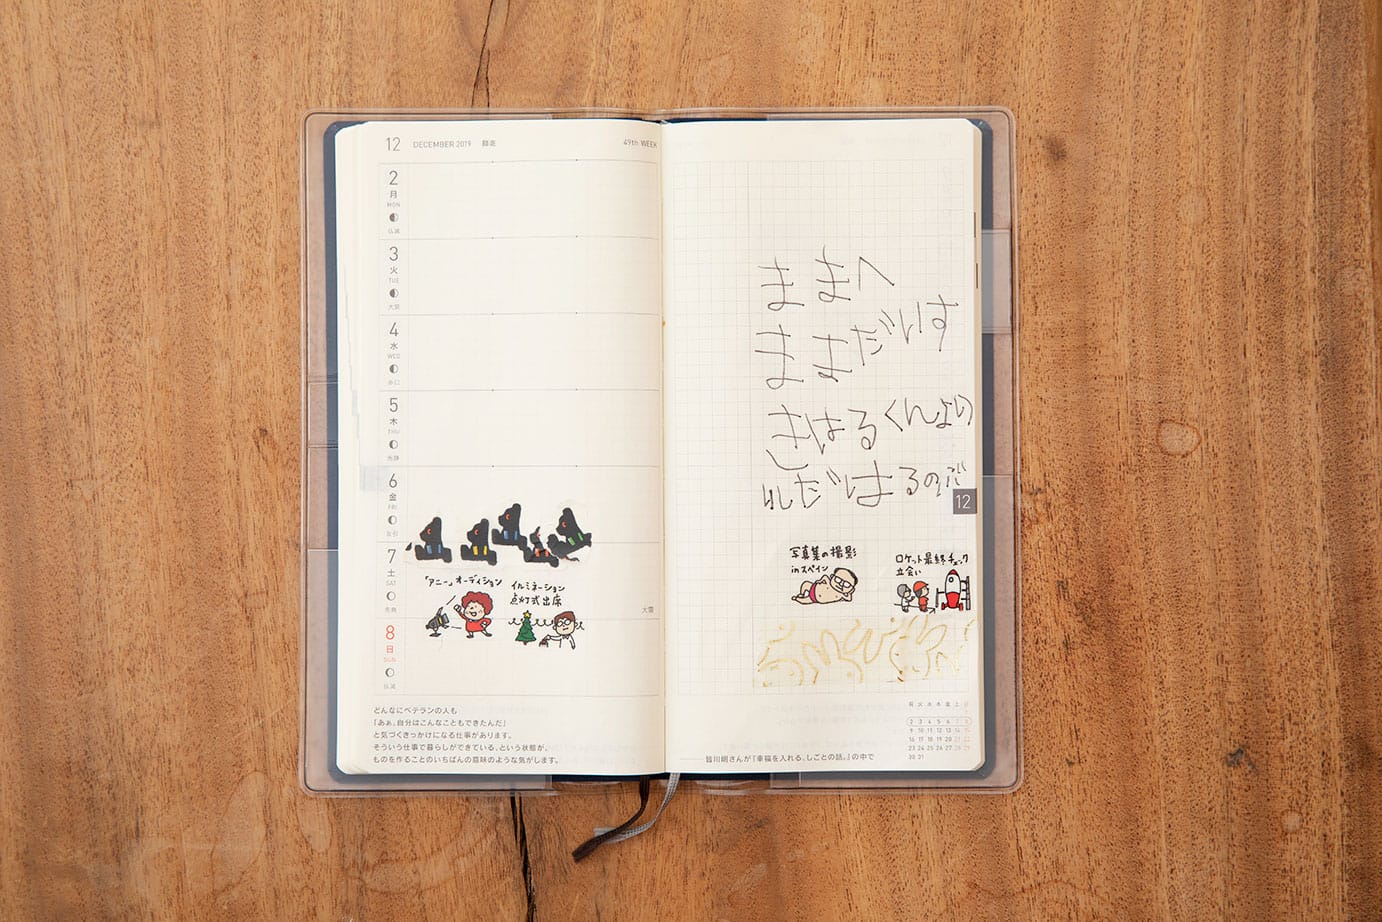 12 DECEMBER 2019 師走 49th WEEK
2
月
MON
仏滅
3
火
TUE
大安
4
水
WED
赤口
5
木
THU
先勝
6
金
FRI
友引
7
土
SAT
先負
大雪
8
日
SUN
仏滅
「アニー」オーディション
イルミネーション
点灯式出席
どんなにベテランの人も
「あぁ、自分はこんなこともできたんだ」
と気づくきっかけになる仕事があります。
そういう仕事で暮らしができている、という状態が、
ものを作ることのいちばんの意味のような気がします。
ままへ
ままだいす
きはるくんより
12
写真集の撮影
inスペイン
ロケット最終チェック
立会い
月 火 水 木 金 土 日
2 3 4 5 6 7 8
9 10 11 12 13 14 15
16 17 18 19 20 21 22
23 24 25 26 27 28 29
30 31
——皆川明さんが『幸福を入れる、しごとの話。』の中で